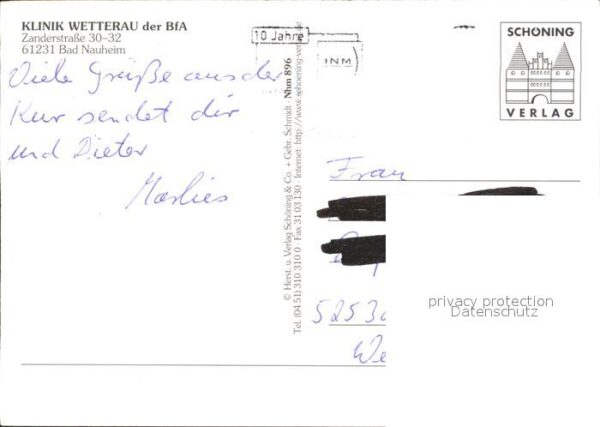 KLINIK WETTERAU der BfA
Zanderstraße 30–32
61231 Bad Nauheim
Viele Grüße aus der
Kur sendet dir
und Dieter
Marlies
10 Jahre
INM
© Herst. u. Verlag Schöning & Co. + Gebr. Schmidt · Nhm 896
Tel. (04 51) 310 310 0 · Fax 31 03 130 · Internet: http://www.schoening-verlag.de
SCHÖNING
VERLAG
Frau
5253
We
privacy protection
Datenschutz